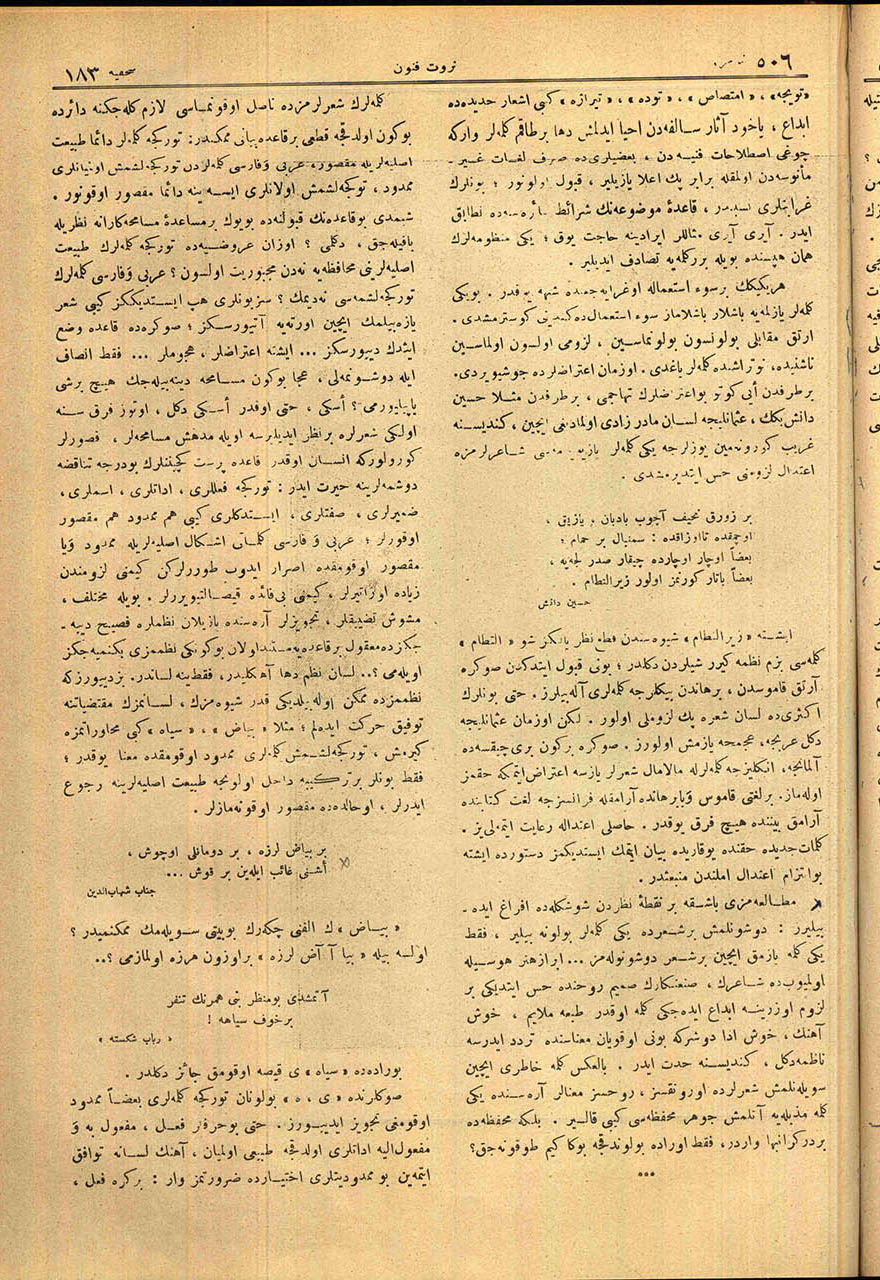 صحیفه ١٨٣
ثروت فنون
نومرو ٥٠٦
«تویجه» ، «امتصاص» ، «توده» ، «تیرازه» کبی اشعار جدیده‌ده
ابداع ، یاخود آثار سالفه‌دن احیا ایدلمش دها برطاقم کله‌لر وارکه
چوغی اصطلاحات فنیه‌دن ، بعضیلری‌ده صرف لغات غیر ـ
مأنوسه‌دن اولمقله برابر پك اعلا یازیلیر ، قبول اولونور ؛ بونلرك
غرابتلری نسبیدر ، قاعدۀ موضوعه‌نك شرائط سائره‌سنه‌ده تطابق
ایدر . آیری آیری مثاللر ایرادینه حاجت یوق ؛ یکی منظومه‌لرك
همان هپسنده بویله بررکله‌یه تصادف ایدیلیر .
هریکیلکك برسوء استعماله اوغرایه‌جغنده شبهه یوقدر . بویکی
کله‌لر یازلمه‌یه باشلار باشلاماز سوء استعمال‌ده کندینی کوسترمشدی .
ارتق مقابلی بولونسون بولونماسین ، لزومی اولسون اولماسین
ناشنیده ، نوتراشیده کله‌لر یاغدی . اوزمان اعتراضلرده جوشیویردی.
برطرفدن أیی کوتو بواعتراضلرك تهاجمی ، برطرفدن مثلا حسین
دانش‌بكك ، عثمانلیجه لسان مادر زادی اولمادیغی ایچین ، کندیسنه
غریب کورونه‌مین یوزلرجه یکی کله‌لر شاعرلرمزه
اعتدال لزومنی حس ایتدیرمشدی .
بر زورق نحیف آچوب بادبان ، یازیق ،
اوچمقده تااوزاقده : سمنبال بر حمام ؛
بعضاً اوچار اوچارده چیقار صدر لجه‌یه ،
بعضاً باتار کورنمز اولور زیرالنطام .
حسین دانش
ایشته «زیرالنطام» شیوه‌سندن قطع نظر یالکز شو «التطام»
کله‌سی بزم نظمه کیرر شیلردن دکلدر ؛ بونی قبول ایتدکدن صوکره
آرتق قاموسدن ، برهاندن بیکلرجه کله‌لری آله‌بیلرز . حتی بونلرك
اکثری‌ده لسان شعره پك لزوملی اولور . لکن اوزمان عثمانلیجه
دکل عربیجه ، عجمجه یازمش اولورز . صوکره برکون بری چیقسه‌ده
آلمانجه ، انکلیزجه کله‌لرله مالامال شعرلر یازسه اعتراض ایتمکه حقمز
اوله‌ماز. برلغتی قاموس ویابرهانده آرامقله فرانسزجه لغت کتابنده
آرامق بیننده هیچ فرق یوقدر . حاصلی اعتداله رعایت ایتمه‌لی‌یز .
کلمات جدیده حقنده یوقاریده بیان ایتمك ایستدیکمز دستورده ایشته
بوالتزام اعتدال املندن منبعثدر .
مطالعه‌مزی باشقه بر نقطۀ نظردن شوشکله‌ده افراغ ایده ـ
بیلیرز : دوشونلمش برشعرده یکی کله‌لر بولونه بیلیر ، فقط
یکی کله یازمق ایچین برشعر دوشونوله‌مز ... ابرازهنر هوسیله
اولمیوب‌ده شاعرك ، صنعتکارك صمیم روحنده حس ایتدیکی بر
لزوم اوزرینه ابداع ایده‌جکی کله اوقدر طبعه ملایم ، خوش
آهنك ، خوش ادا دوشرکه بونی اوقویان معناسنده تردد ایدرسه
ناظمه‌دکل ، کندیسنه حدت ایدر . بالعکس کله خاطری ایچین
سویله‌نلمش شعرلرده اورونقسز ، روحسز معنالر آره‌سنده یکی
کله مذبله‌یه آتلمش جوهر محفظه‌سی کبی قالیر . بلکه محفظه‌ده
بردرکرانبها واردر ، فقط اوراده بولوندقجه بوکا کیم طوقونه‌جق؟
***
کله‌لرك شعرلرمزده ناصل اوقونماسی لازم کله‌جکنه دائرده
بوکون اولدقجه قطعی برقاعده بیانی ممکندر: تورکجه کله‌لر دائما طبیعت
اصلیه‌لریله مقصور، عربی وفارسی کله‌لردن تورکجه‌لشمش اولمایانلری
ممدود ، تورکجه‌لشمش اولانلری ایسه ینه دائما مقصور اوقونور .
شیمدی بوقاعده‌نك قبولنه‌ده بویوك برمساعدۀ مسامحه‌کارانه نظریله
باقیله‌جق ، دکلی ؟ اوزان عروضیه‌ده تورکجه کله‌لرك طبیعت
اصلیه‌لرینی محافظه‌یه نه‌دن مجبوریت اولسون ؟ عربی وفارسی کله‌لرك
تورکجه‌لشمه‌سی نه‌دیمك ؟ سزبونلری هپ ایستدیککز کیبی شعر
یازه‌بیلمك ایچین اورته‌یه آتیورسکز ؛ صوکره‌ده قاعده وضع
ایتدك دیبورسکز ... ایشته اعتراضلر ، هجوملر ... فقط انصاف
ایله دوشونمه‌لی ، عجبا بوکون مسامحه دینه‌بیله‌جك هیچ برشی
یاپیلیورمی ؟ أسکی ، حتی اوقدر أسکی دکل ، اوتوز قرق سنه
اولکی شعرلره برنظر ایدیلیرسه اویله مدهش مسامحه‌لر ، قصورلر
کورولورکه انسان اوقدر قاعده پرست کچینلرك بودرجه تناقضه
دوشمه‌لرینه حیرت ایدر : تورکجه فعللری ، اداتلری ، اسملری ،
ضمیرلری ، صفتلری ، ایستدکلری کیبی هم ممدود هم مقصور
اوقورلر ؛ عربی و فارسی کلماتی اشکال اصلیه‌لریله ممدود ویا
مقصور اوقومقده اصرار ایدوب طوررلرکن کیمنی لزومندن
زیاده اوزاتیرلر ، کیمنی بی‌فائده قیصالتیویررلر . بویله مختلف ،
مشوش تضییقلر ، تجویزلر آره‌سنده یازیلان نظملره فصیح دیبه ـ
جکزده معقول برقاعده‌یه مستنداولان بوکونکی نظممزی بکنمیه‌جکز
اویله‌می ؟.. لسان نظم دها آهنکلیدر، فقط ینه لساندر. بز دیبورزکه
نظممزده ممکن اوله بیلدیکی قدر شیوه‌مزك ، لسانمزك مقتضیاتنه
توفیق حرکت ایده‌لم ؛ مثلا « بیاض » ، « سیاه » کبی محاوراتمزه
کیرمش ، تورکجه‌لشمش کله‌لری ممدود اوقومقده معنا یوقدر ؛
فقط بونلر برترکیبه داخل اولونجه طبیعت اصلیه‌لرینه رجوع
ایدرلر ، اوحالده‌ده مقصور اوقونه‌مازلر.
بر بیاض لرزه ، بر دومانلی اوچوش ،
أشنی غائب ایله‌ین بر قوش ...
جناب شهاب‌الدین
« بیاض » ك الفنی چکه‌رك بوبیتی سویله‌مك ممکنمیدر ؟
اولسه بیله « بیا آ آض لرزه » براوزون هرزه اولمازمی ؟..
آتمشدی بومنظر بنی همرنك تنفر
برخوف سیاهه !
« رباب شکسته »
بوراده‌ده « سیاه » ی قیصه اوقومق جائز دکلدر .
صوکلرنده « ی ، ه » بولونان تورکجه کله‌لری بعضاً ممدود
اوقومنی تجویز ایدیبورز. حتی بوحرفلر فعل ، مفعول به و
مفعول‌الیه اداتلری اولدقجه طبیعی اولمیان ، آهنك لسانه توافق
ایتمه‌ین بو ممدودیتلری اختیارده ضرورتمز وار : برکره فعل ،